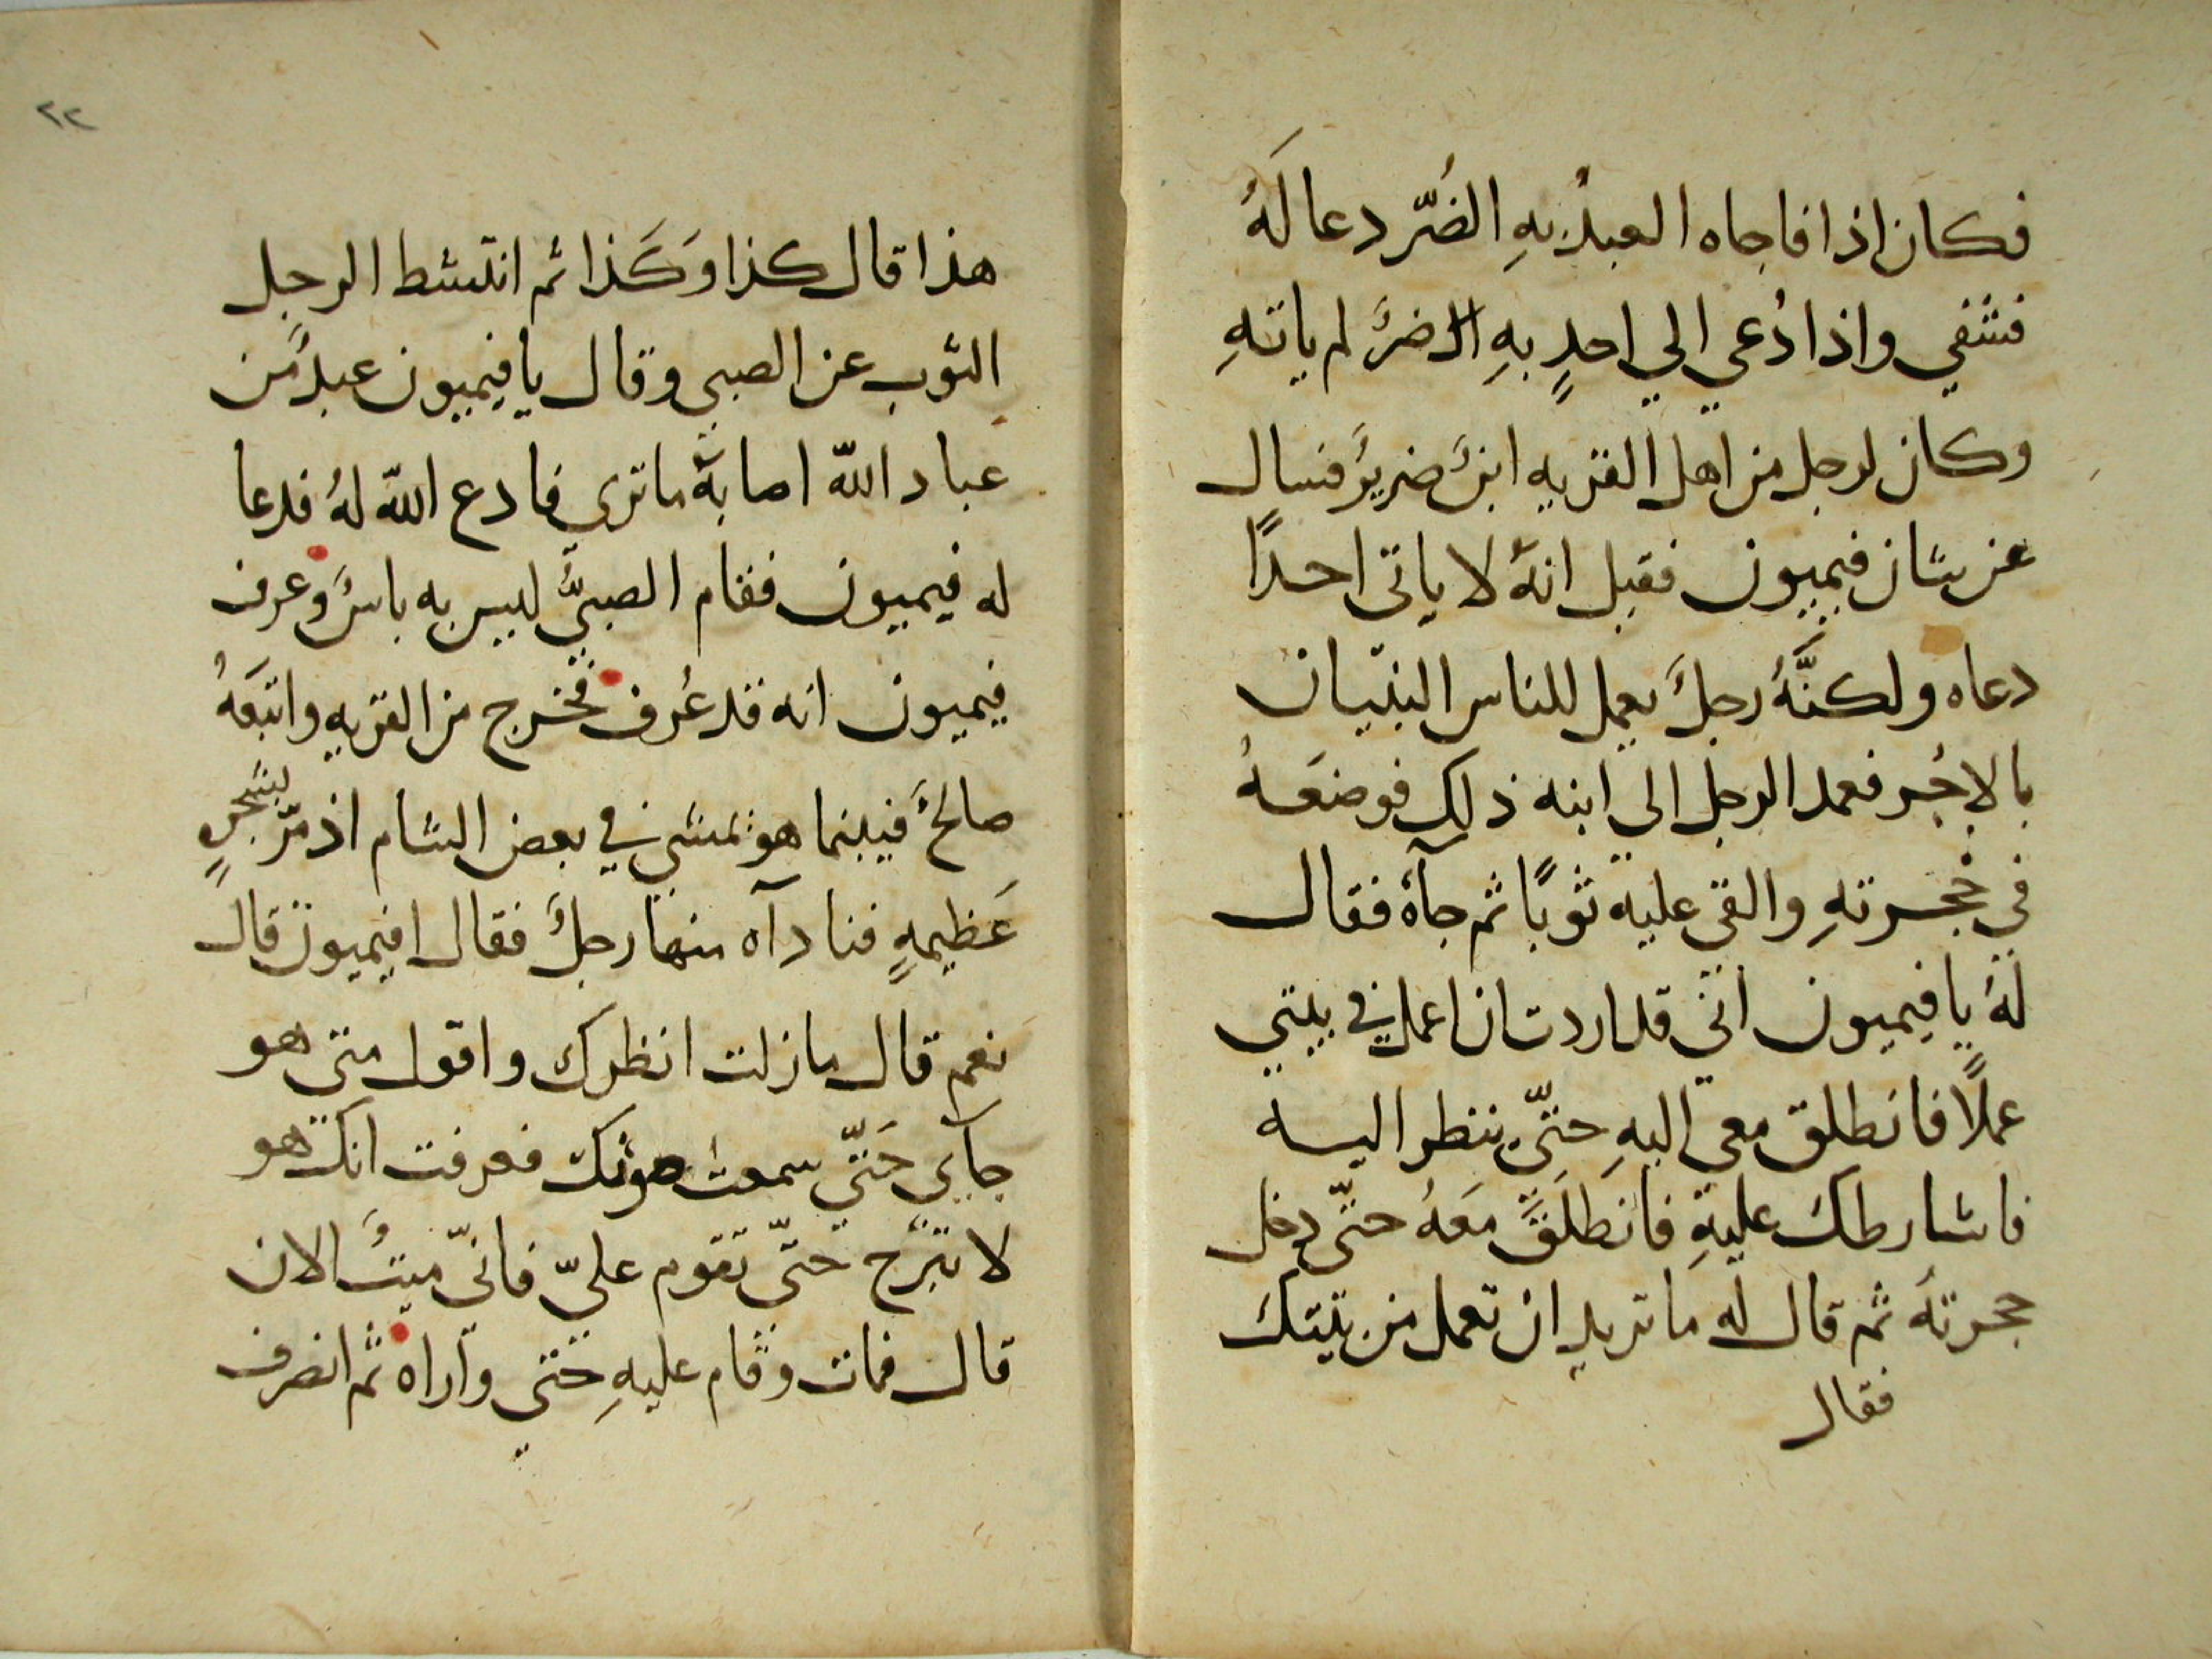 فكان اذا فاجاه العبدُ بهِ الضُرّ دعا لَهُ
فشفي واذا دُعي الي احدٍ بهِ الضرُّ لم ياتهِ
وكان لرجل من اهل القريه ابنٌ ضريرٌ فسال
عن شان فيميون فقيل انهُ لا ياتى احدًا
دعاه ولكنَّهُ رجلٌ يعمل للناس البنيان
بالاجُر فعمد الرجل الي ابنه ذلك فوضعَهُ
في حُجرتهِ والقى عليه ثوبًا ثم جآهُ فقال
لهُ يا فيميون انّي قد اردت ان اعمل في بيتي
عملًا فانطلق معي اليهِ حتّي ننظر اليه
فاشارطك عليهِ فانطلَقَ مَعَهُ حتّى دخل
حجرتهُ ثم قال له ما تريد ان تعمل من بيتك
فقال
٢٢
هذا قال كذا وَكَذا ثم انتشط الرجل
الثوب عن الصبي وقال يا فيميون عبدٌ من
عباد اللّه اصابهُ ما ترى فادع اللّه لهُ فدعا
له فيميون فقام الصبيُّ ليس به باسٌ وعرف
فيميون انه قد عُرف فخرج من القريه واتبَعَهُ
صالحٌ فبينما هو يمشي في بعض الشام اذ مرّ بشجرٍ
عَظيمهٍ فنادآه منها رجلٌ فقال افيميون قال
نعم قال ما زلت انظرك واقول متى هو
جآي حَتّي سمعت صوتك فعرفت انك هو
لا تبرح حتّي تقوم عليّ فانّي ميتٌ الان
قال فمات وقام عليهِ حتي واراه ثم انصرف